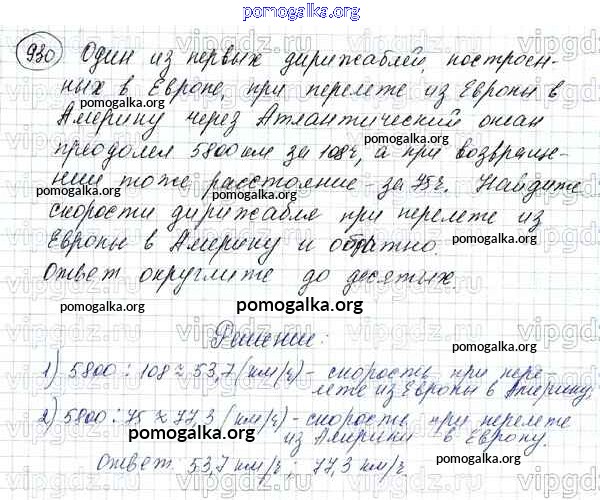 pomogalka.org
930 Один из первых дирижаблей, построен-
ных в Европе, при перелете из Европы в
pomogalka.org
Америку через Атлантический океан
pomogalka.org
преодолел 5800 км за 108ч, а при возвраще-
нии тоже расстояние - за 75ч. Найдите
pomogalka.org
скорости дирижабля при перелете из
Европы в Америку и обратно.
pomogalka.org
Ответ округлите до десятых.
pomogalka.org
pomogalka.org
pomogalka.org
Решение:
1) 5800 : 108 ≈ 53,7 (км/ч) - скорость при пере-
лете из Европы в Америку,
2) 5800 : 75 ≈ 77,3 (км/ч) - скорость при перелете
pomogalka.org
из Америки в Европу.
pomogalka.org
Ответ 53,7 км/ч ; 77,3 км/ч